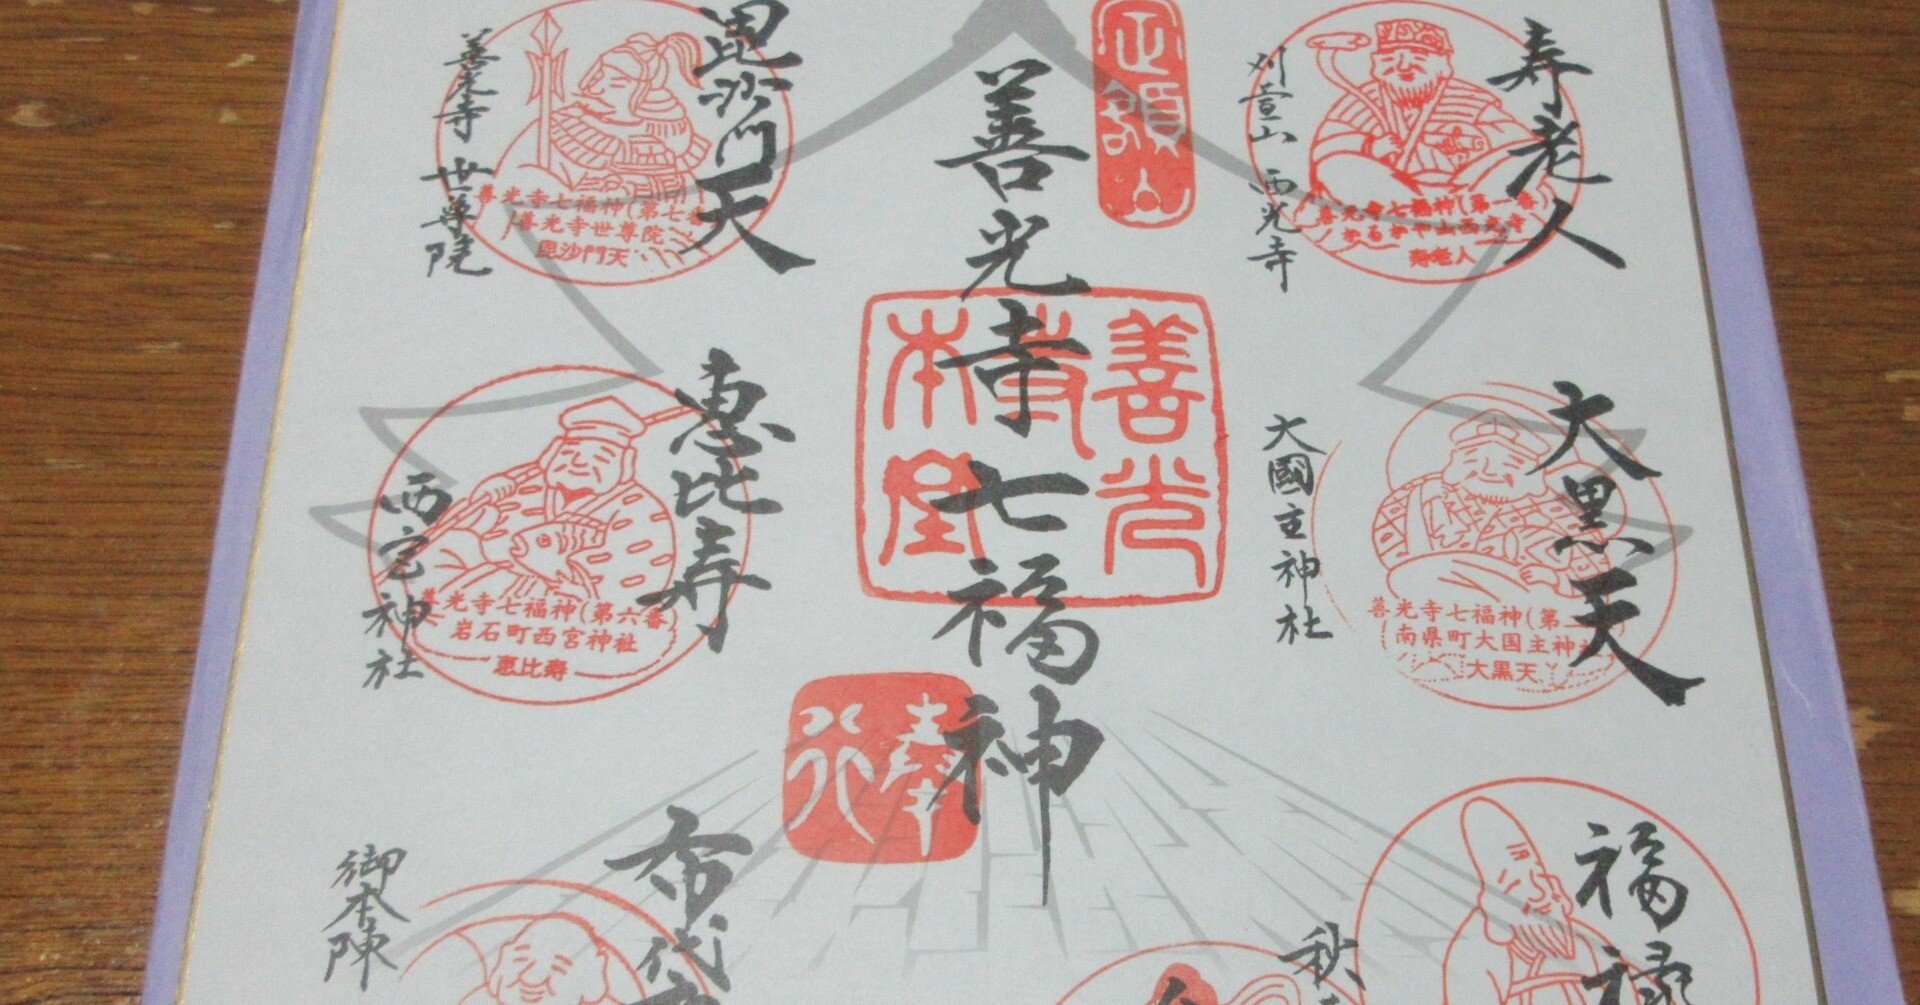 寿老人
刈萱山 西光寺
善光寺七福神(第一番)
寿老人
大黒天
大國主神社
善光寺七福神(第二
南県町大国主神社
大黒天
福禄
秋
定額山
善光寺七福神
善光
寺
本堂
奉
行
毘沙門天
善光寺 世尊院
善光寺七福神(第七番
善光寺世尊院
毘沙門天
恵比寿
西宮神社
善光寺七福神(第六番
岩石町西宮神社
恵比寿
布袋
御本陳